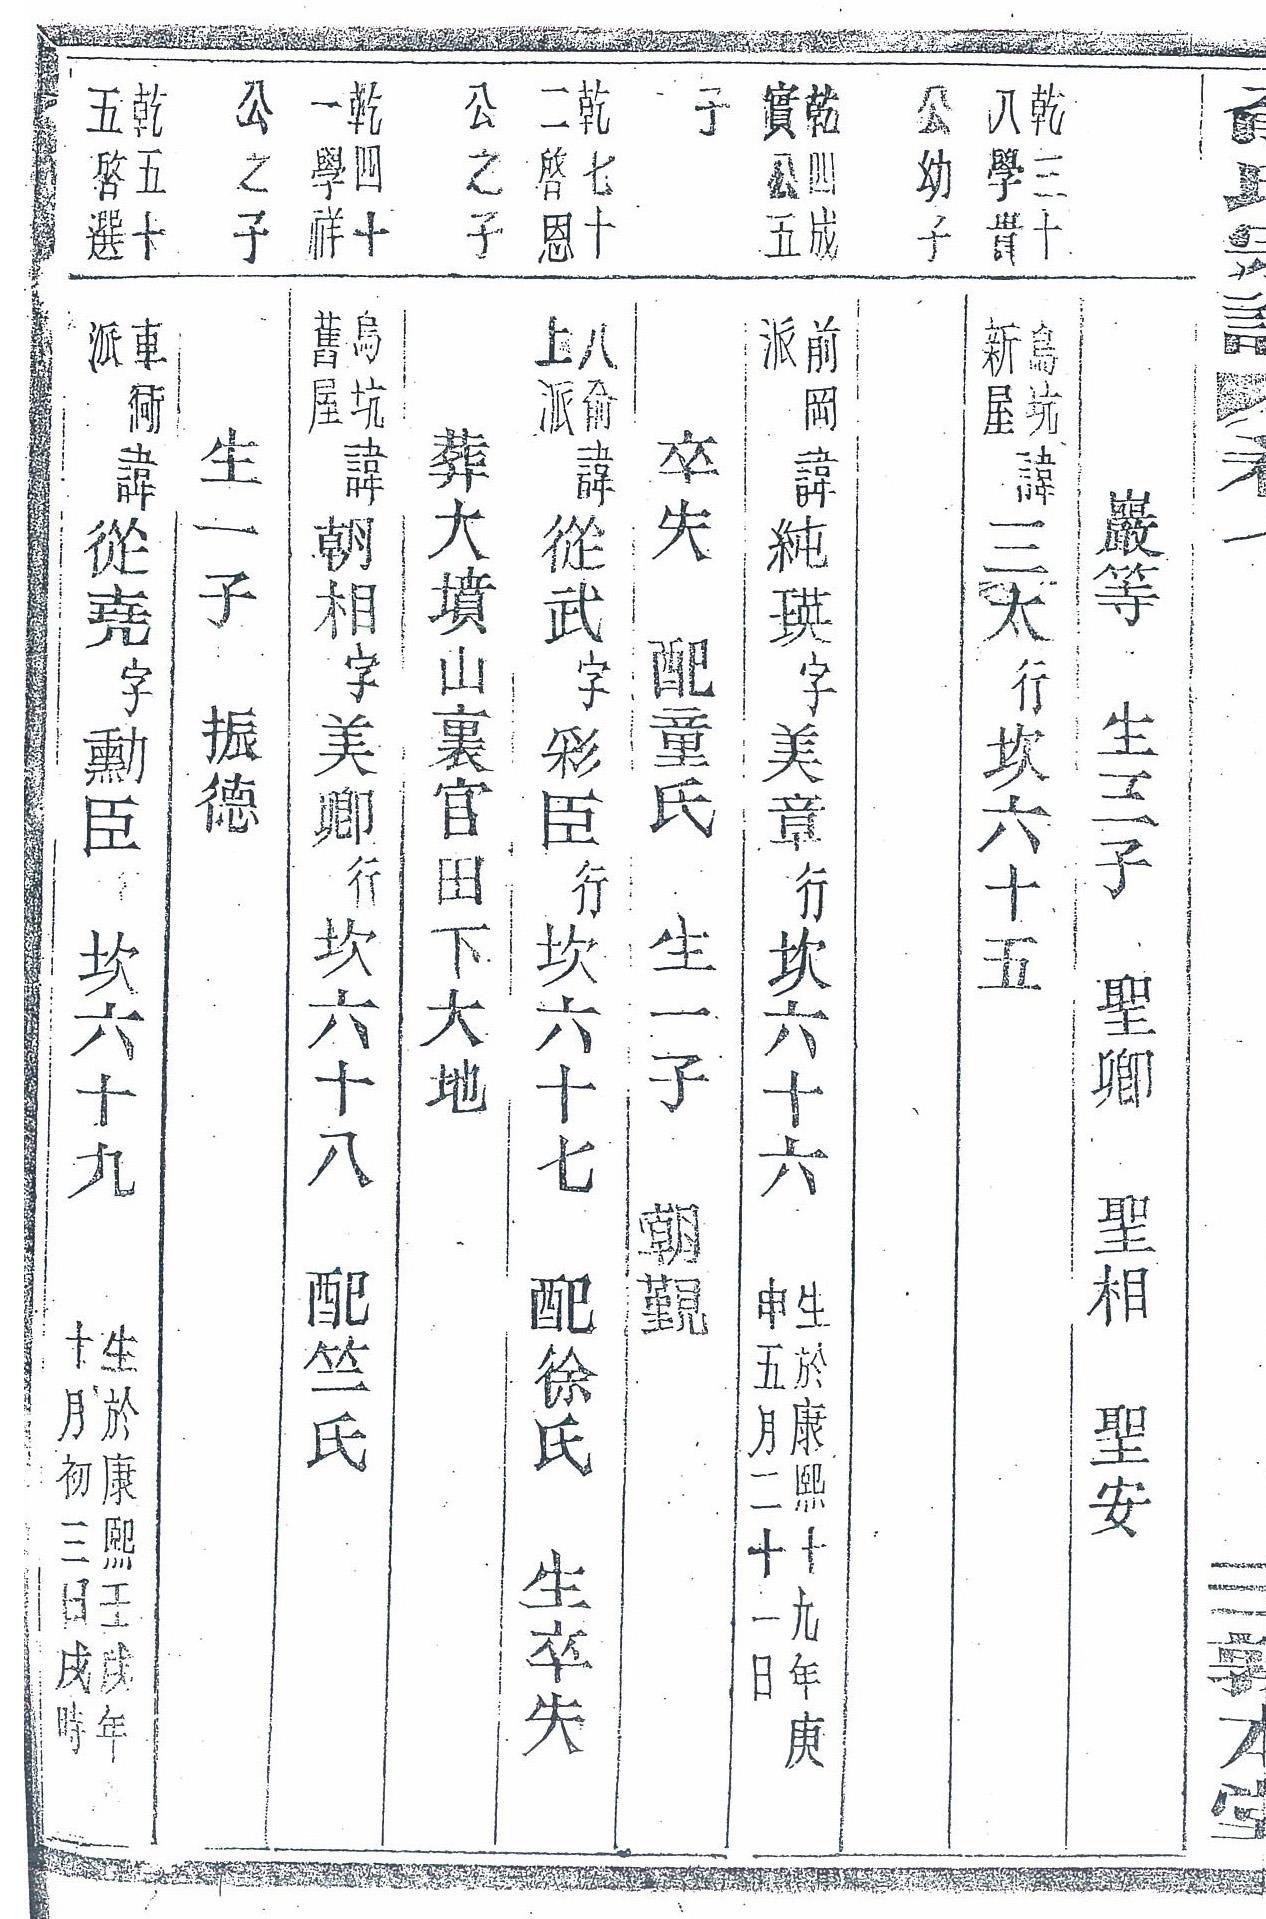 卷一
嚴等　生三子　聖卿　聖相　聖安
乾三十
八學貫
公幼子
烏坑
新屋
諱三太行坎六十五
乾四成
實公五
子
前岡
派
諱純瑛字美章行坎六十六
生於康熙十九年庚
申五月二十一日
卒失　配童氏　生一子　朝覲
乾七十
二啓恩
公之子
八俞
上派
諱從武字彩臣行坎六十七　配徐氏　生卒失
葬大墳山裏官田下大地
乾四十
一學祥
公之子
烏坑
舊屋
諱朝相字美卿行坎六十八　配竺氏
生一子　振德
乾五十
五啓選
車衕
派
諱從堯字勳臣　坎六十九
生於康熙壬戌年
十月初三日戌時
本堂